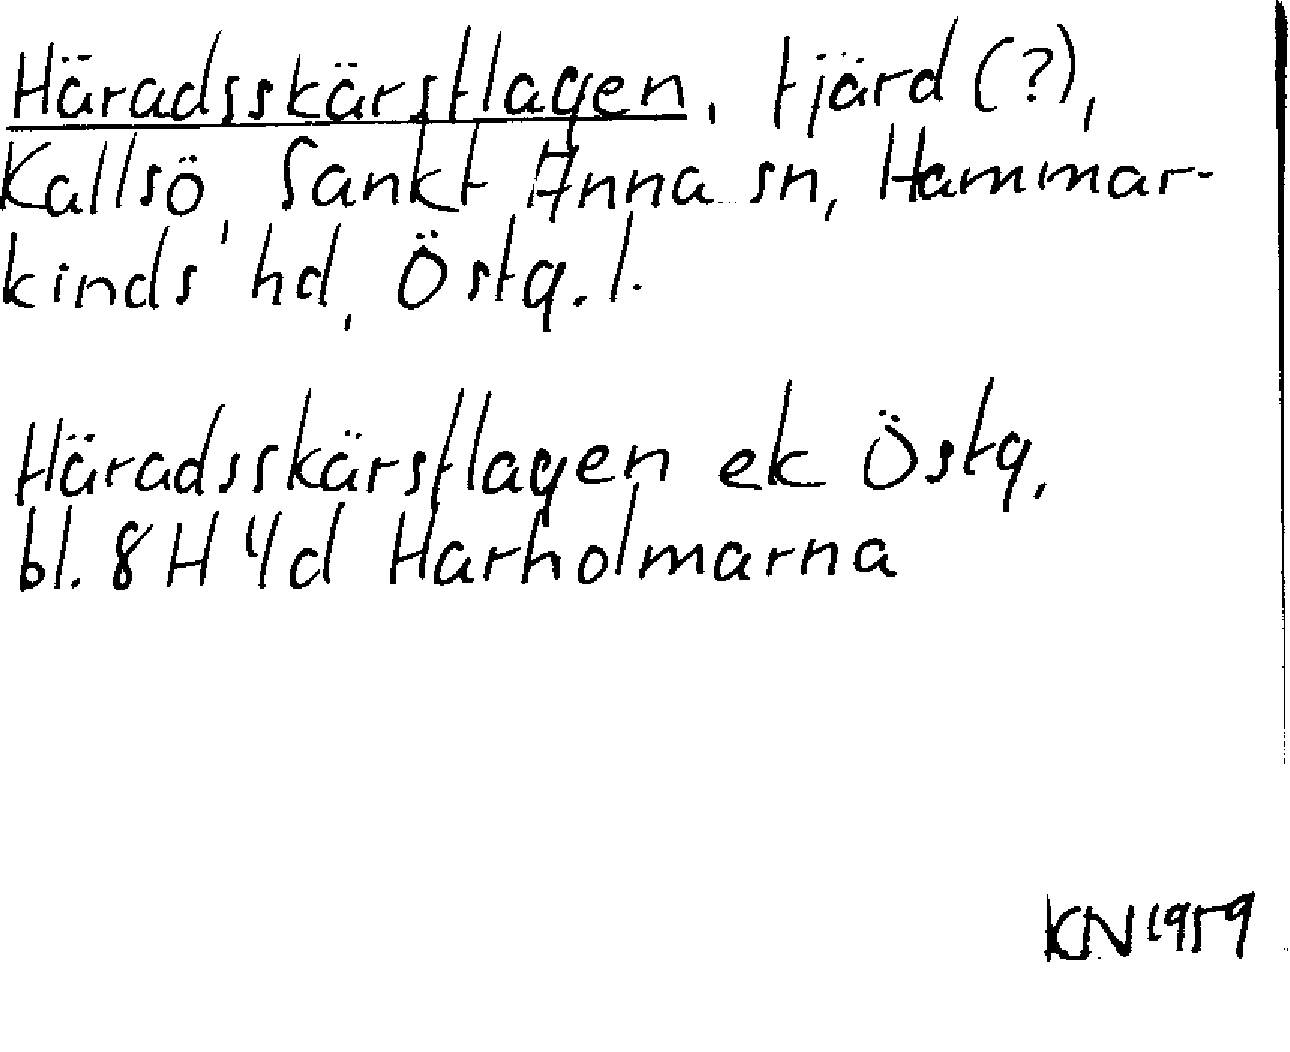 Häradsskärsflagen, fjärd (?),
Kallsö, Sankt Anna sn, Hammar-
kinds hd, Östg. l.
Häradsskärsflagen ek Östg,
bl. 8 H 4d Harholmarna
KN 1959